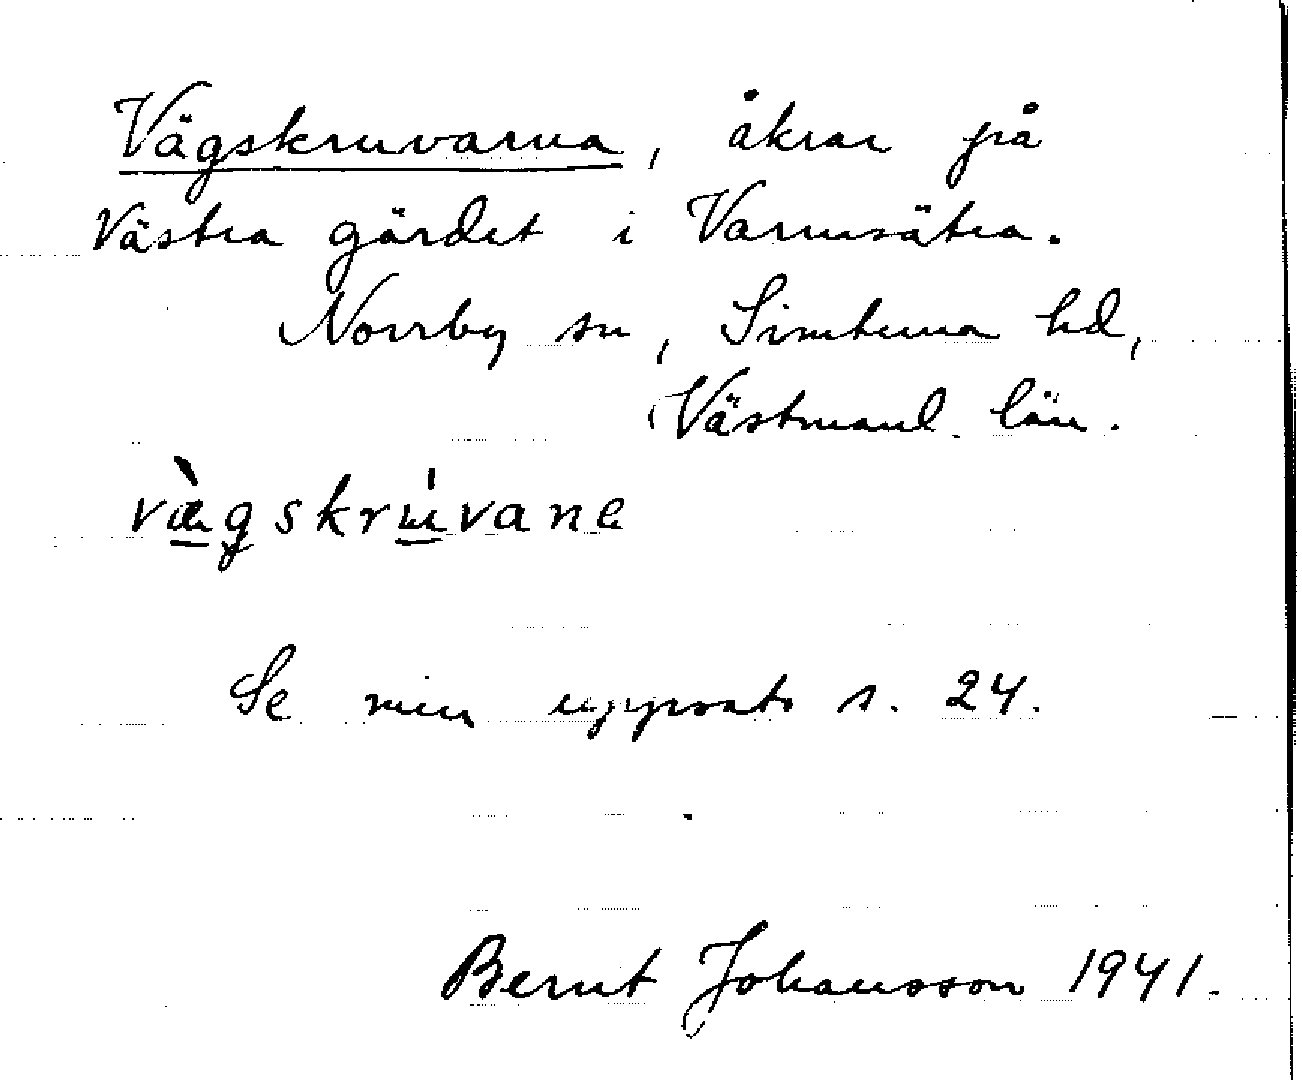 Vägskruvarna, åkrar på
Västra gärdet i Varmsätra.
Norrby sn, Simtuna hd,
Västmanl. län.
væ̀gskrɯ́vane
Se min uppsats s. 24.
Bernt Johansson 1941.